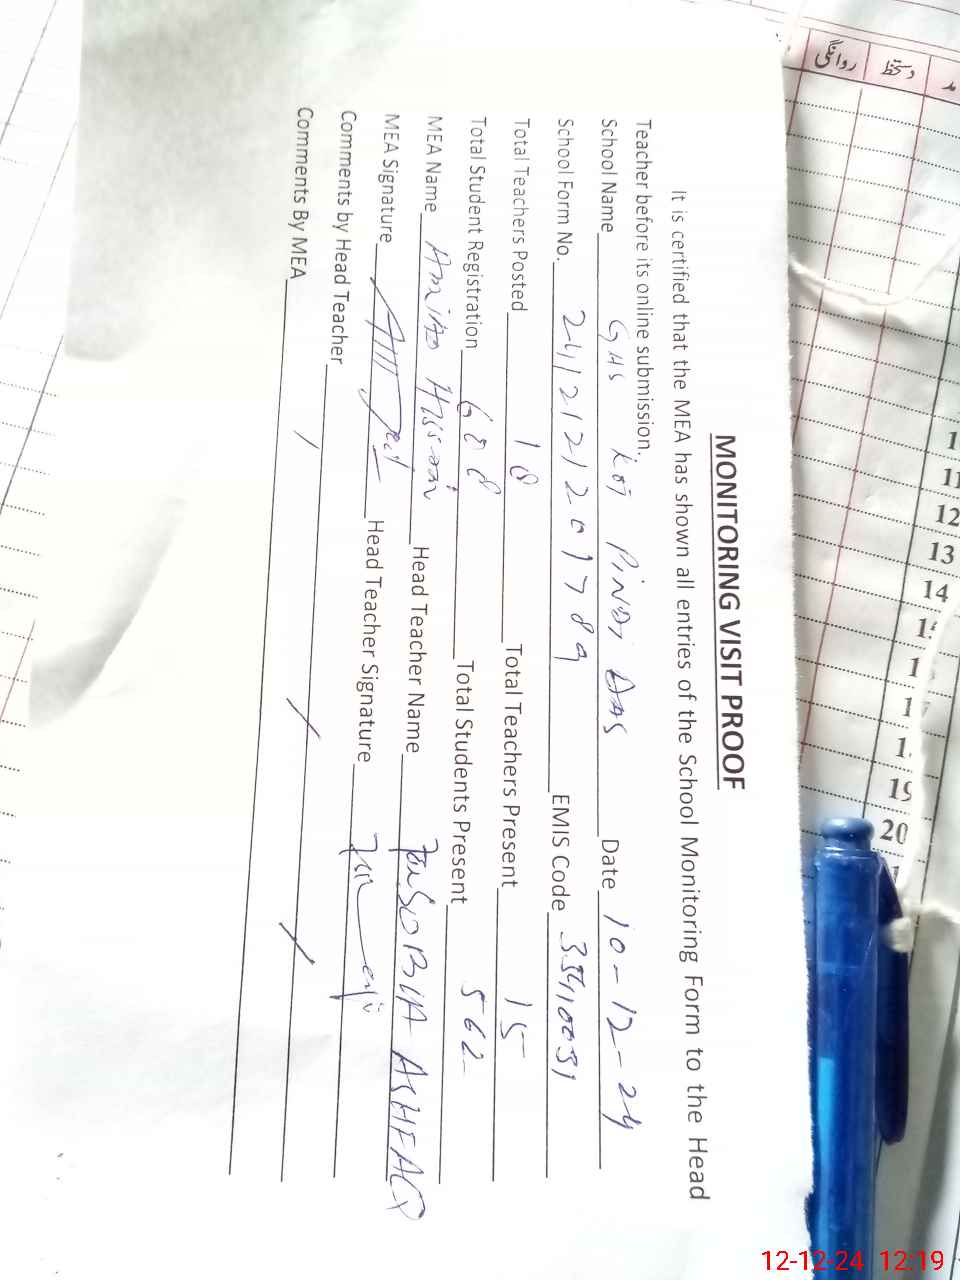 MONITORING VISIT PROOF
It is certified that the MEA has shown all entries of the School Monitoring Form to the Head
Teacher before its online submission.
School Name GHS KOT PINDI DAS Date 10-12-24
School Form No. 2412121201789 EMIS Code 35410031
Total Teachers Posted 18 Total Teachers Present 15
Total Student Registration 608 Total Students Present 562
MEA Name Hassan Head Teacher Name SOBIA ASHFAQ
MEA Signature Head Teacher Signature
Comments by Head Teacher
Comments By MEA
روانگی
دستخط
مد
11
12
13
14
19
20
12-12-24 12:19